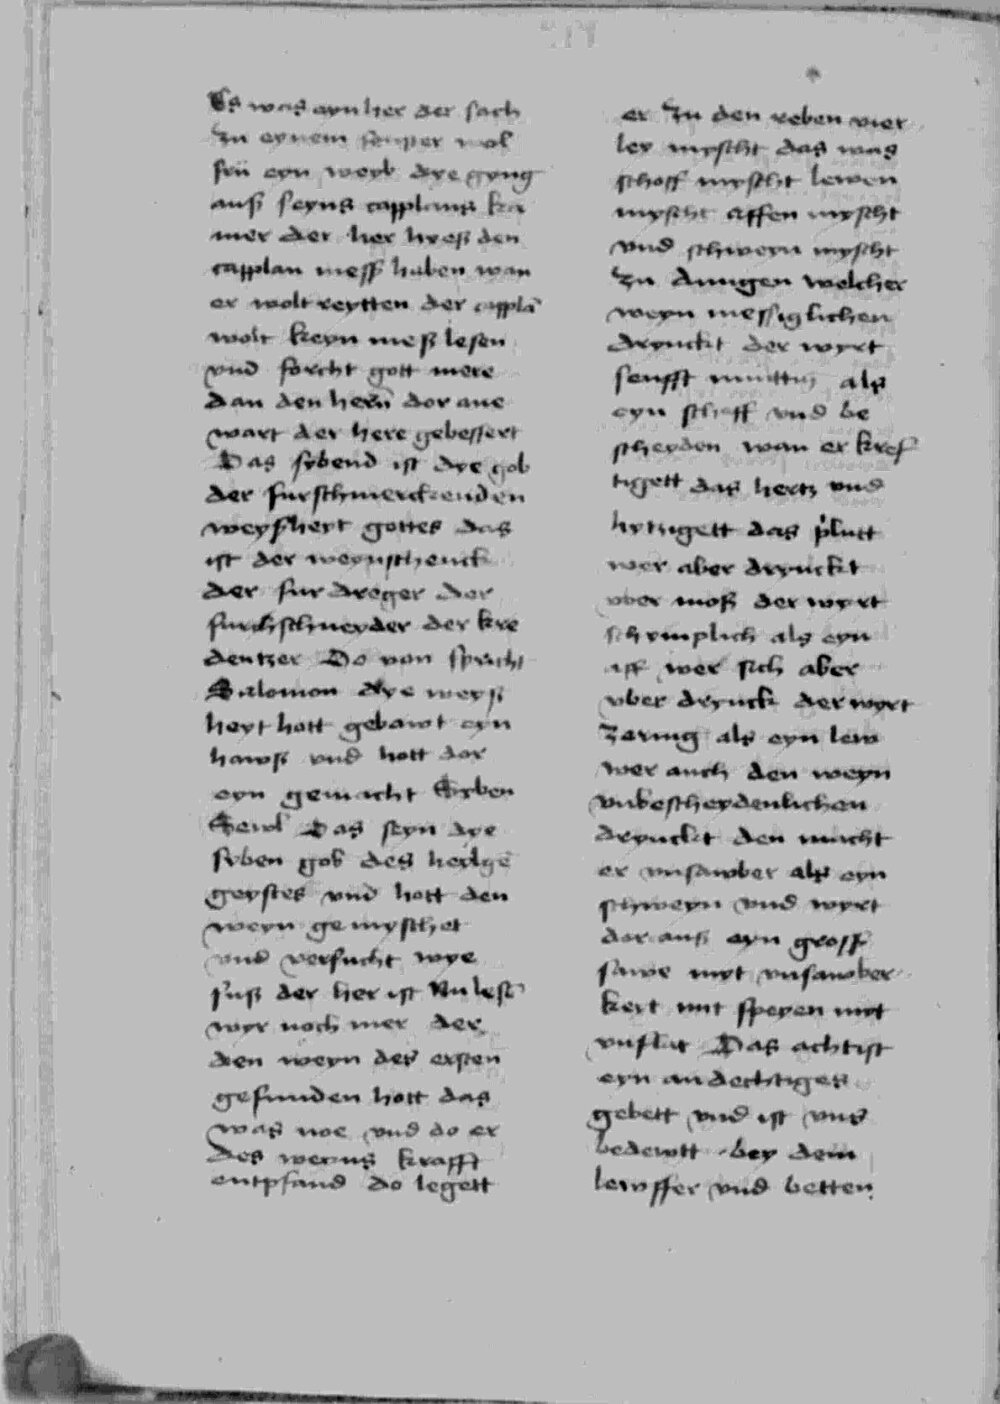 Es was eyn her der sach
zu eynem fenster wol
frü eyn weyb dye gyng
auß seyns capplans ka
mer der her hyeß den
capplan messß haben wan
er wolt reytten der capplā
wolt keyn meß lesen
vnd forcht gott mere
dan den hern̄ dor ane
wart der here gebessert
Das sybend ist dye gob
der furschmerckenden
weyßheyt gottes das
ist der weynschenck
der fur dreger der
furchschneyder der kre
dentzer Do von spricht
Salomon dye weyß
heyt hott gebawt eyn
hawß vnd hott dor
eyn gemacht Syben
Sewl Das seyn dye
syben gob des heylgē
geystes vnd hott den
weyn gemyschet
vnd versucht wye
suß der her ist Nu lesē
wyr noch mer der
den weyn des ersten
gefunden hott das
was noe vnd do er
des weyns krafft
entpfand do legett
er zu den reben vier
ley myscht das was
schoff myscht lewen
myscht affen myscht
vnd schweyn myscht
zu dungen welcher
weyn messiglichen
drynckt der wyrt
senfft muttig als
eyn schoff vnd be
scheyden wan er kref
tigett das hertz vnd
hytzigett das plutt
wer aber drynckt
vber moß der wyrt
schymplich als eyn
aff wer sich aber
vber drynck der wyrt
zornig als eyn lew
wer auch den weyn
vnbescheydenlichen
drynckt den macht
er vnsawber als eyn
schweyn vnd wyrt
dor auß eyn grosß
sawe myt vnsawber
kert mit speyen myt
vnflat Das acht ist
eyn andechtiges
gebett vnd ist vns
bedewtt bey dem
lewffer vnd betten